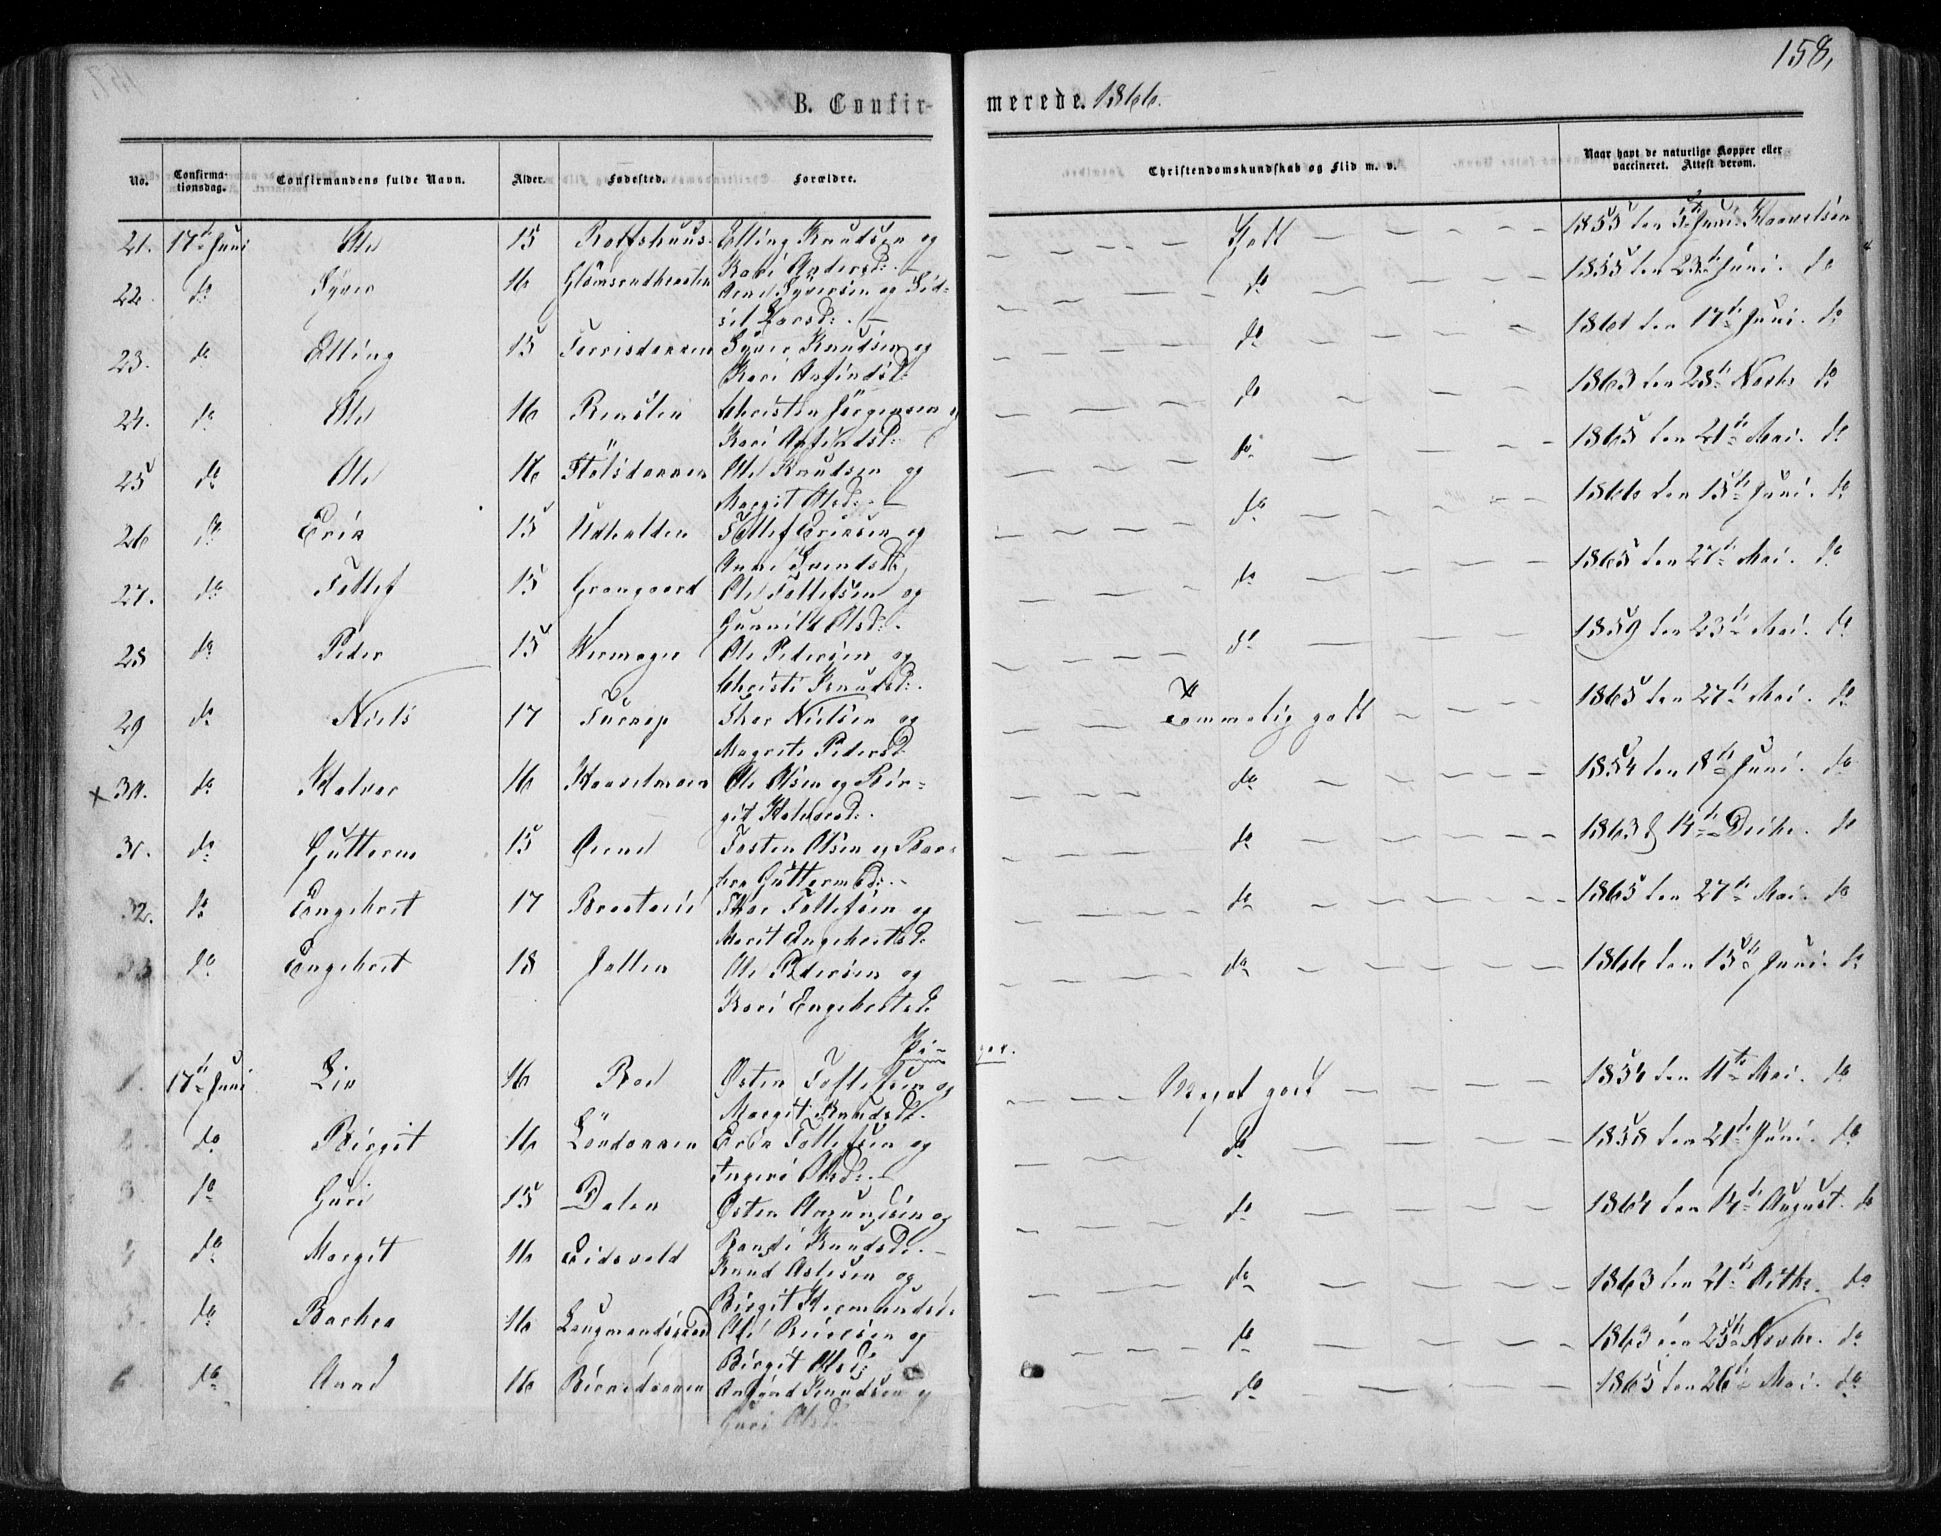 158,
B. Confir- merede. 1866.
No. Confirma-tionsdag. Confirmandens fulde Navn. Alder. Fødested. Forældre. Christendomskundskab og Flid m. v. Naar havt de naturlige Kopper eller vaccineret. Attest derom.
21. 17de Juni Ole 15 Rolfshuus Elling Knudsen og Godt 1855 den 5te Juni
Kari Andersd:
22. do Syver 16 Arne Syversen og Sid- do 1855 den 23de Juni. do
sil Larsd:
23. do Elling 15 Syver Knudsen og do 1861 den 17de Juni. do
Kari Anfindsd:
24. do Ole 16 Rensten Christen Jørgensen og do 1863 den 28de Novbr do
Kari Anfindsd:
25 do Ole 16 Ole Knudsen og do 1865 den 21de Mai. do
Margit Olsd:
26 do Erik 15 Tollef Eriksen og do 1866 den 15de Juni. do
Anne Svendsd:
27. do Tollef 15 Grangaard Ole Tollefsen og do 1865 den 27de Mai. do
Gunnild Olsd:
28 do Peder 15 Ole Pedersen og do 1859 den 23de Mai. do
Christi Knudsd:
29 do Niels 17 Thor Nielsen og Temmelig godt 1865 den 27de Mai. do
Magrete Pedersd:
x 30. do Halvor 16 Ole Olsen og Bir- do 1854 den 18de Juni. do
git Halvorsd:
31. do Guttorm 15 Tosten Olsen og Bar- do 1863 14de Decbr. do
bra Guttormsd:
32. do Engebret 17 Thor Tollefsen og do 1865 den 27de Mai. do
Marit Engebretsd:
33 do Engebret 18 Ole Pedersen og do 1866 den 15de Juni. do
Kari Engebretsd:
Pi- ger.
1. 17de Juni Liv 16 Roe Østen Tollefsen og Meget godt 1854 den 11te Mai. do
Margit Knudsd:
2. do Birgit 16 Erik Tollefsen og do 1858 den 21de Juni. do
Ingeri Olsd:
3. do Guri 15 Dalen Østen Amundsen og do 1864 den 14de August. do
Randi Knudsd:
4 do Margit 16 Eidsvold Knud Aslesen og do 1863 den 21de Octbr. do
Birgit Hermundsd:
5. do Barbra 16 og do 1863 den 25de Novbr. do
Birgit Olsd:
6 do Anne 16 Anfind Knudsen og do 1865 den 26de Mai. do
Guri Olsd: